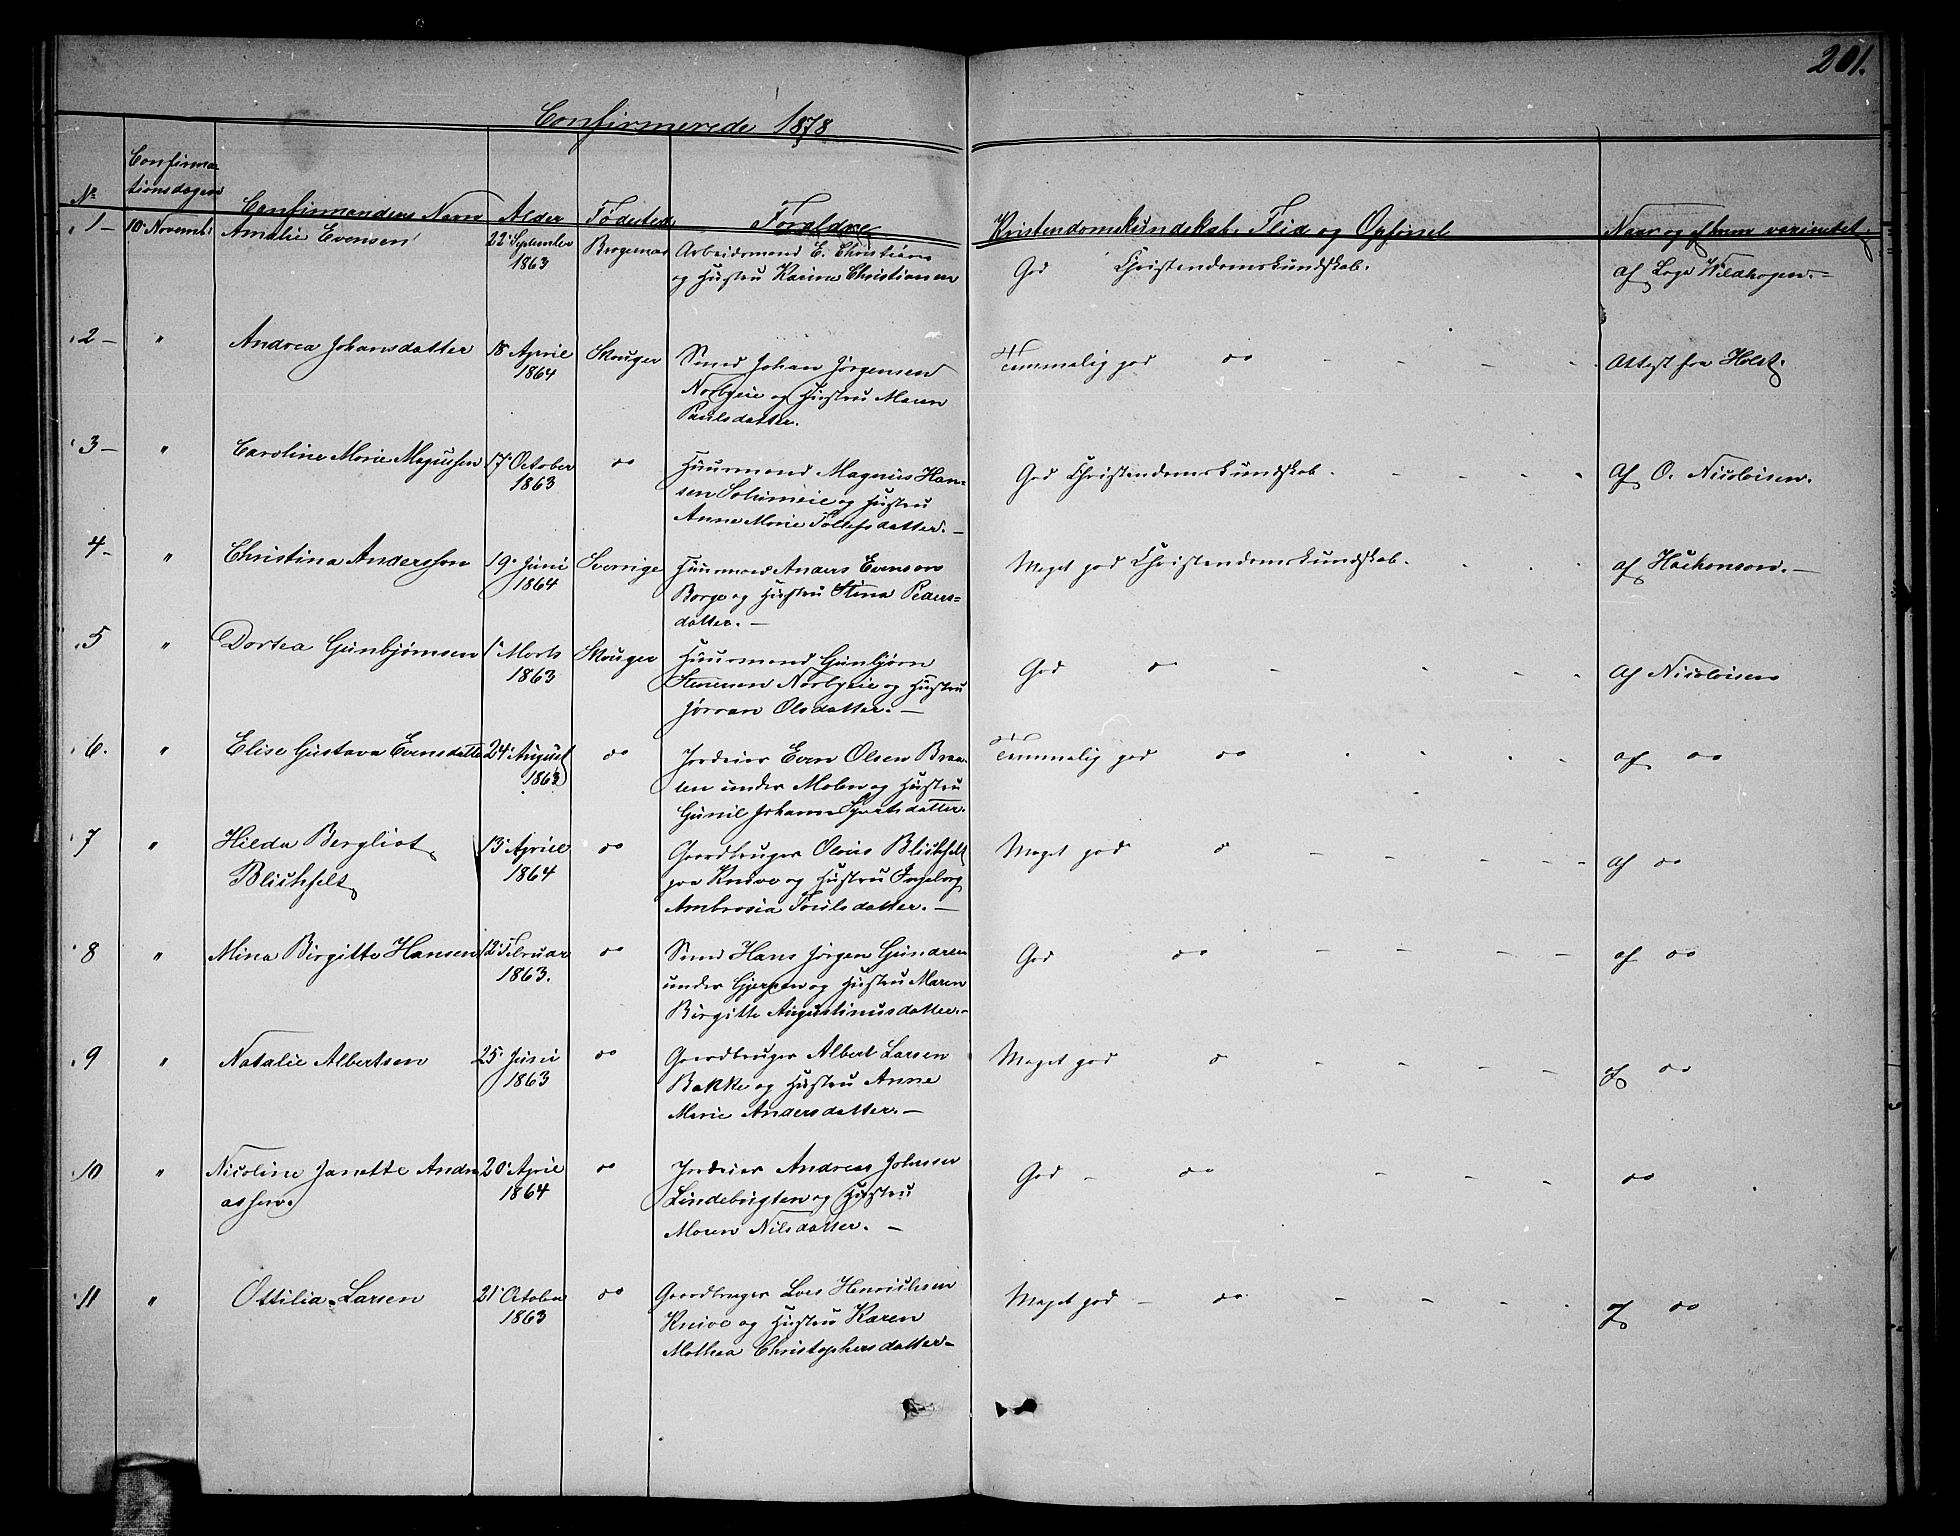 201.
Confirmerede 1878
No Confirmationsdagen Confirmandens Navn Alder Fødested Forældre Kristendomskundskab, Flid og Opførsel Naar og af hvem vaccineret
1 — 10 Novemb: Amalie Evensen 22 September Bragernæs Arbeidsmand E. Christians God Christendomskundskab. af Läge Wildhagen. —
1863 og Hustru Karine Christiansen
2 — " Andrea Johansdatter 18 April Skouger Smed Johan Jørgensen Temmelig god do - - - Attest fra Holst.
1864 Norbyeie og Hustru Maren
Paulsdatter.
3 — " Caroline Marie Magnussen 17 October do Huusmand Magnus Han- God Christendomskundskab. - - - Af O. Nicolaisen.
1863 sen Solumeie og Hustru
Anne Marie Tollefsdatter. —
4 - " Christina Andersson 19 Juni Sverige Huusmand Anders Evensen Meget god Christendomskundskab. - - - af Haakonsen. —
1864 Borge og Hustru Stina Peders=
datter. —
5 " Dortea Gunbjørnsen 1 Marts Skouger Huusmand Gunbjørn God do - - - Af Nicolaisen
1863 Stenersen Norbyeie og Hustru
Jørran Olsdatter. —
6. " Elise Gustava Evensdatte 24 August do Jordeier Even Olsen Braa- Temmelig god do - - - af do
1863 ten under og Hustru
Gunil Johanne Syvertsdatter.
7 " Hilda Bergliot 13 April do Gaardbruger Olaus Blichfelt Meget god do - - - af do
Blichfelt 1864 paa Knive og Hustru Ingeborg
Ambrosia Poulsdatter. —
8 " Mina Birgitte Hansen 12 Februar do Smed Hans Jørgen Gundersen God do - - - af do
1863. under Gjerpen og Hustru Maren
Birgitte Augustinusdatter. -
9 " Natalie Albertsen 25 Juni do Gaardbruger Albert Larsen Meget god do - - - af do
1863 Bakke og Hustru Anne
Marie Andersdatter. —
10 " Nicoline Janette Andre 20 April do Jordeier Andreas Johnsen God - do - - - do
assen. 1864 Lindebugten og Hustru
Maren Nilsdatter. —
11 " Ottilia Larsen 21 October do Gaardbruger Lars Henrichsen Meget god - do - - - af do
1863 Knive og Hustru Karen
Mathea Christophersdatter -